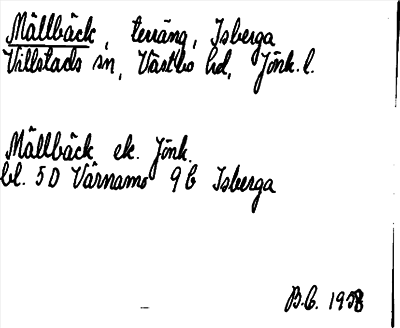 Mållbäck, terräng, Isberga
Villstads sn, Västbo hd, Jönk. l.
Mållbäck ek. Jönk.
bl. 5D Värnamo 9b Isberga
B.G. 1958